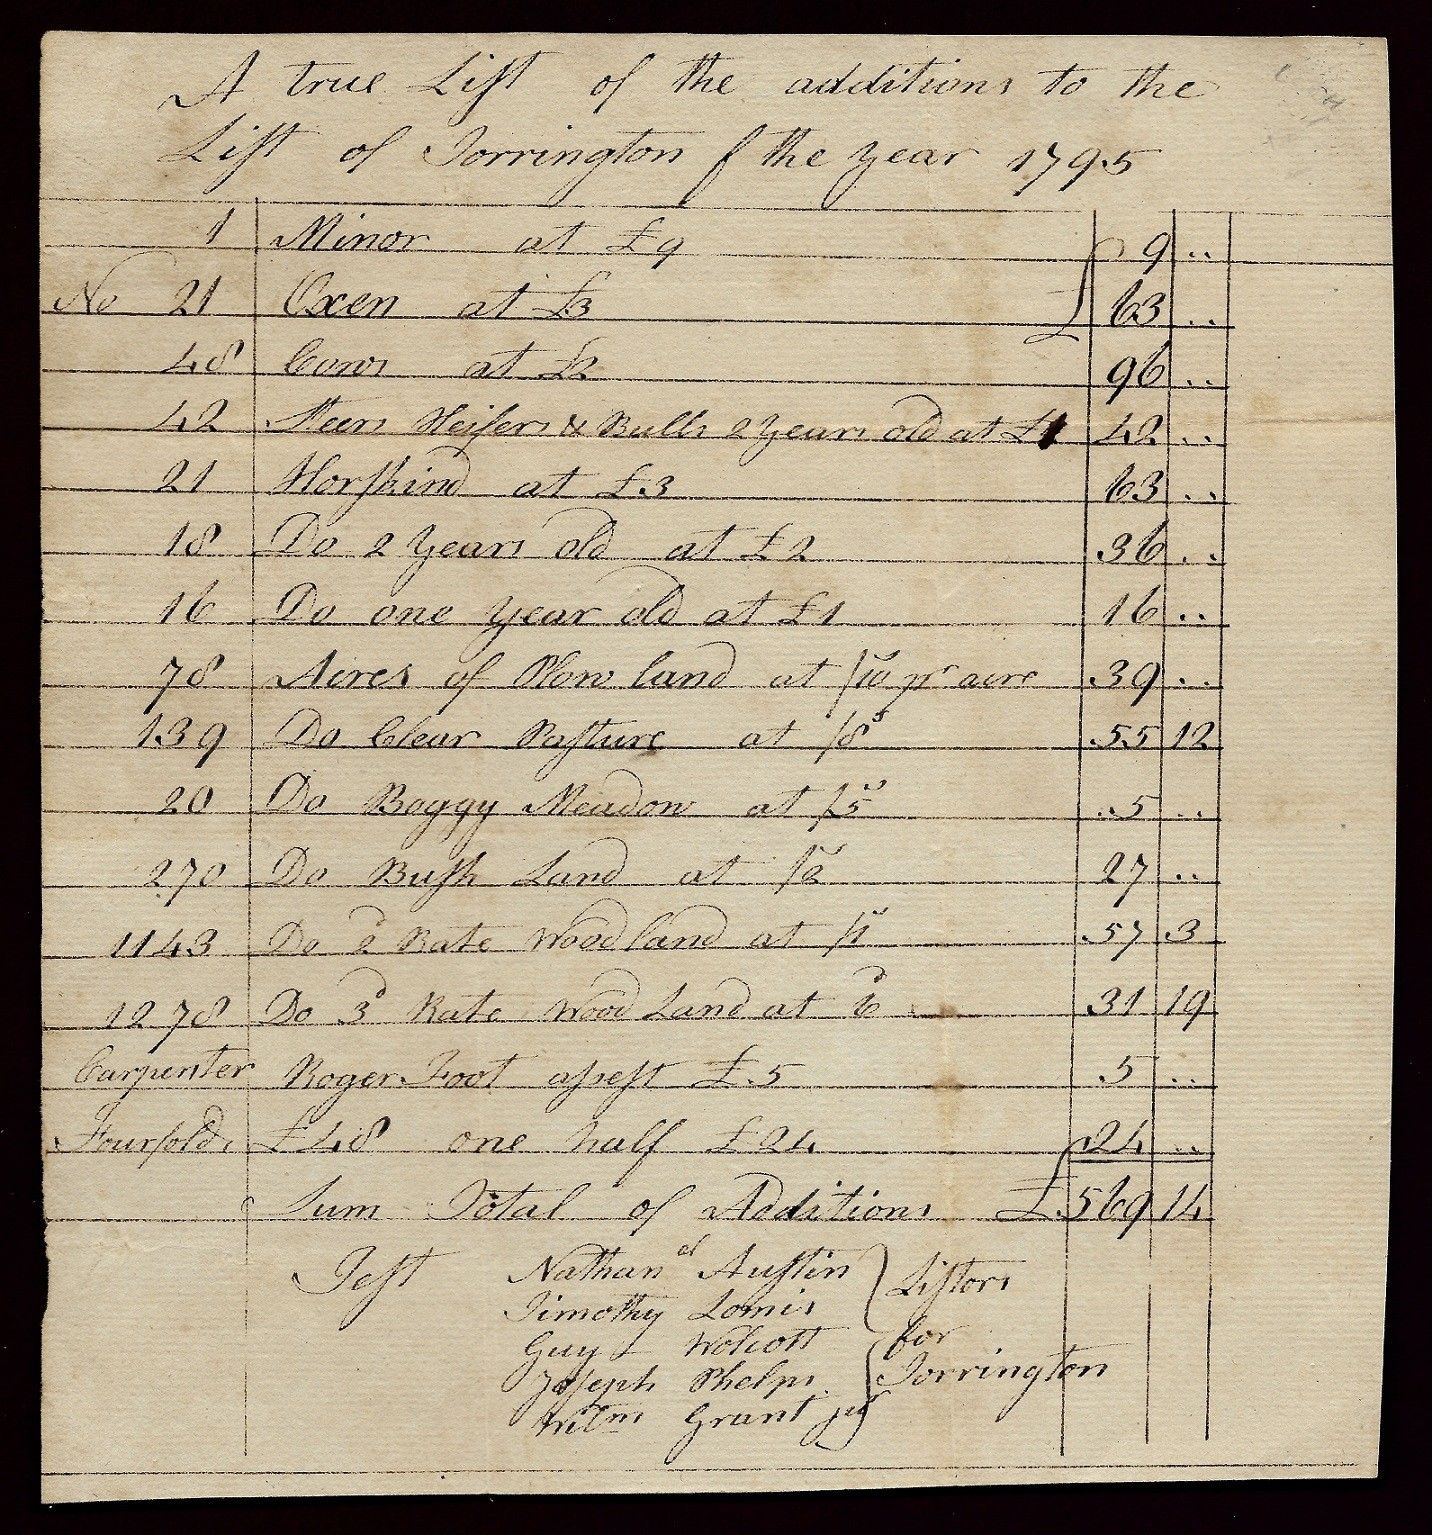 A true List of the additions to the
List of Torrington f the Year 1795
1 Minor at £9 9 ..
No 21 Oxen at £3 £ 63 ..
48 Cows at £2 96 ..
42 Steers Heifers & Bulls 2 Years old at £1 42 ..
21 Horskind at £3 63 ..
18 Do 2 Years old at £2 36 ..
16 Do one Year old at £1 16 ..
78 Acres of Plow land at /10 pr acre 39 ..
139 Do Clear Pasture at /8s 55 12
20 Do Boggy Meadow at /5 5 ..
270 Do Bush Land at /2 27 ..
1143 Do 2d Rate Wood land at /1 57 3
1278 Do 3d Rate Wood Land at 6d 31 19
Carpenter Roger Foot assest £5 5 ..
Fourfolds £48 one half £24 24 ..
Sum Total of Additions £ 569 14
Test Nathanel Austin } Listors
Timothy Lomis
Guy Wolcott } for
Joseph Phelps Torrington
Willm Grant jur